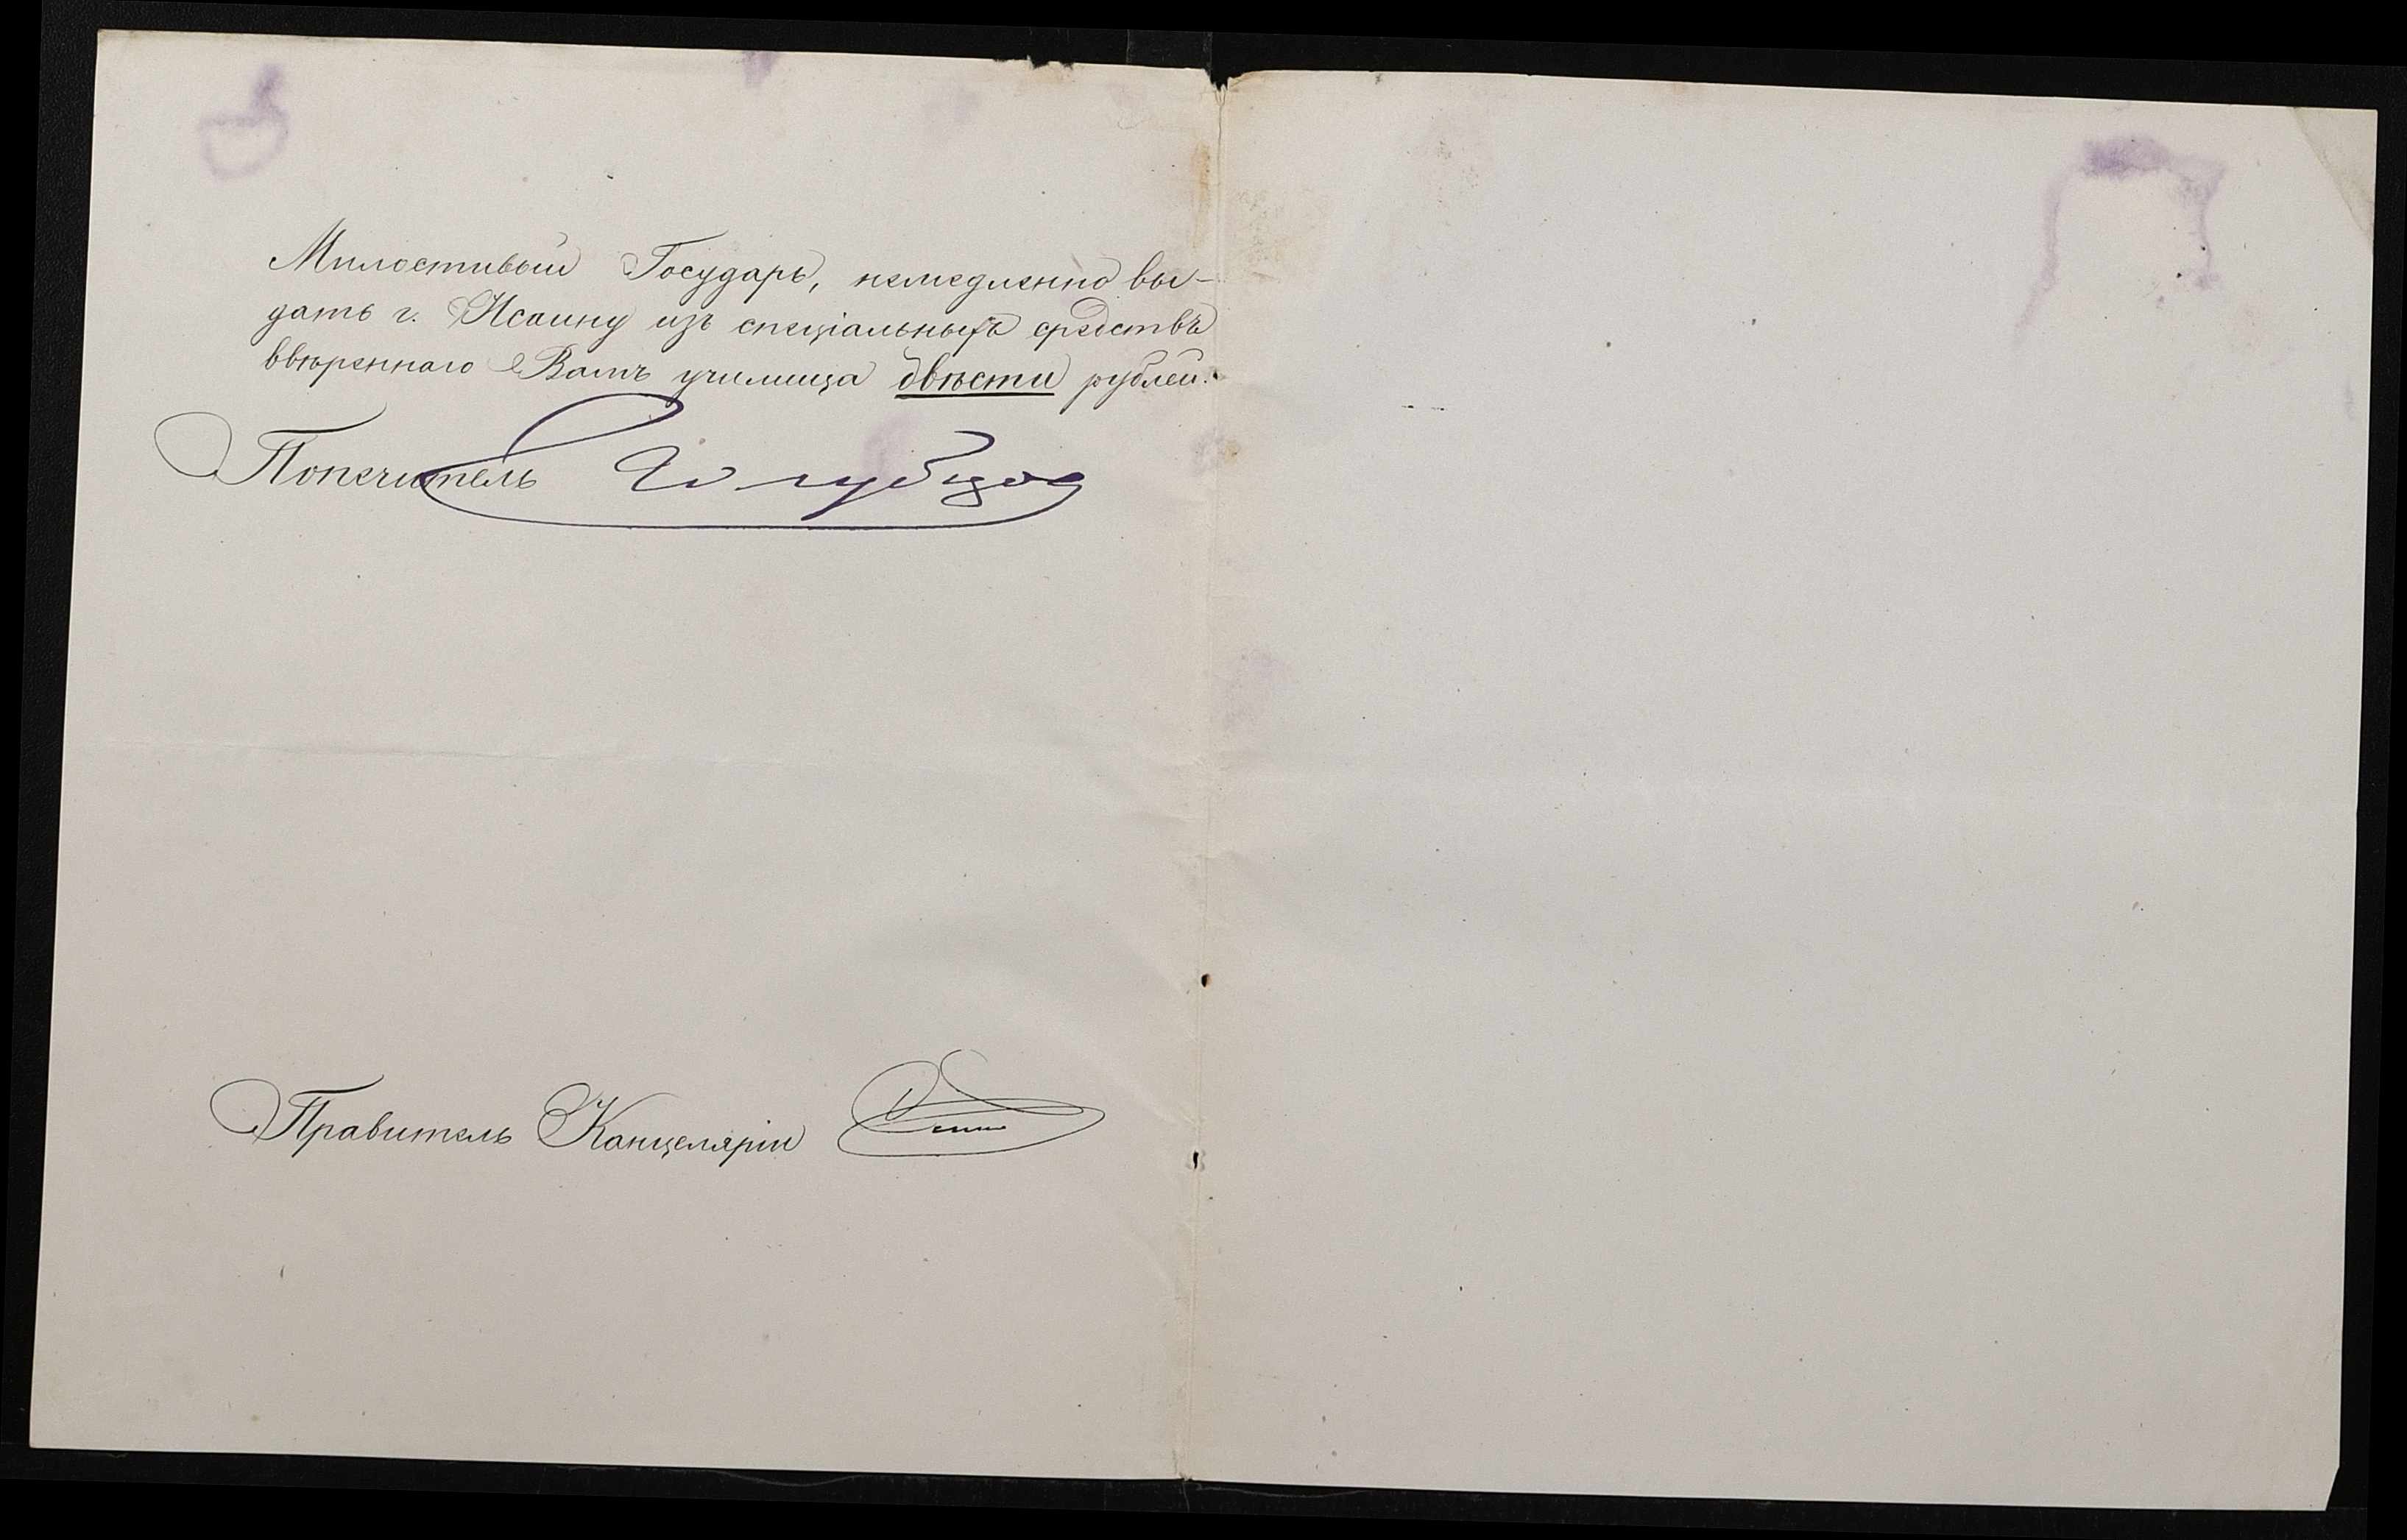 Милостивый Государь, немедленно вы-
дать г. Исаину изъ спеціальныхъ средствъ
ввѣреннаго Вамъ училища двѣсти рублей.
Попечитель Голубцов
Правитель Канцеляріи